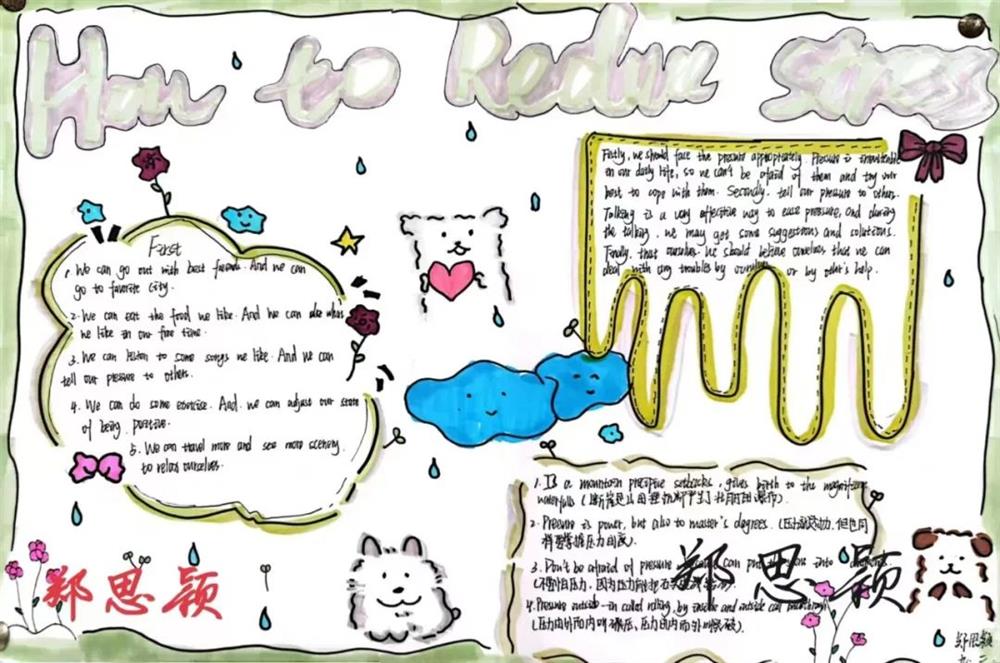 How to Reduce Stress
First
1. We can go out with best friends. And we can
go to favorite city.
2. We can eat the food we like. And we can
we like in our free time.
3. We can listen to some songs we like. And we can
tell our pressure to others.
4. We can do some exercise. And we can adjust our state
of being positive.
5. We can travel more and see more scenery
to relax ourselves.
Firstly, we should face the pressure appropriately. Pressure is inevitable
in our daily life, so we can't be afraid of them and try our
best to cope with them. Secondly, tell our pressure to others.
Talking is a very effective way to ease pressure, and during
the talking, we may get some suggestions and solutions.
Finally, that ourselves. We should believe ourselves that we can
deal with any troubles by ourselves or by other's help.
1. Is a mountain precipice setbacks, gives birth to the magnificent
waterfalls
2. Pressure is power, but also to master's degrees. (压力是动力,但也同
样要掌握压力的度).
3. Don't be afraid of pressure can into
(不要怕压力,因为压力
4. Pressure outside-in called by inside and outside call
(压力由外而内叫 压力由内而外叫突破).
郑思颖
郑思颖
郑思颖